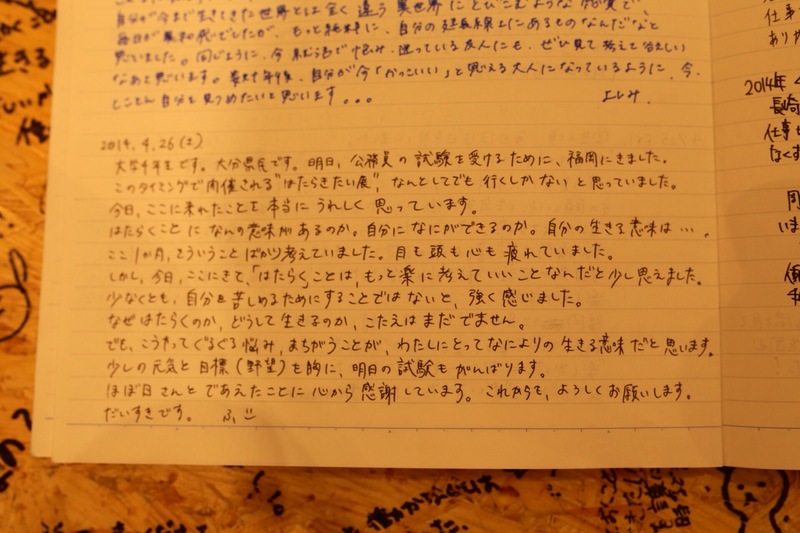 自分が今まで生きてきた世界とは全く違う異世界にとびこむような感覚で、
毎日が
もっと純粋に、自分の延長線上にあるものなんだなと
思いました。同じように、今
悩み、迷っている友人にも、ぜひ見て考えて欲しい
なあと思います。
自分が今「かっこいい」と思える大人になっているように、今、
とことん自分を見つめたいと思います。。。
よしみ.
2014. 4. 26 (土)
大学4年生です。大分県民です。明日、公務員の試験を受けるために、福岡にきました。
このタイミングで開催される"はたらきたい展"、なんとしてでも行くしかないと思っていました。
今日、ここに来れたことを本当にうれしく思っています。
はたらくことになんの意味があるのか。自分になにができるのか。自分の生きる意味は…。
ここ1か月、そういうことばかり考えていました。目も頭も心も疲れていました。
しかし、今日、ここにきて、「はたらく」ことは、もっと楽に考えていいことなんだと少し思えました。
少なくとも、自分を苦しめるためにすることではないと、強く感じました。
なぜはたらくのか、どうして生きるのか、こたえはまだでません。
でも、こうやってぐるぐる悩み、まちがうことが、わたしにとってなによりの生きる意味だと思います。
少しの元気と目標(野望)を胸に、明日の試験もがんばります。
ほぼ日さんとであえたことに心から感謝しています。これからも、よろしくお願いします。
だいすきです。 ふ
仕事
2014年
長崎
仕事
なくす
いま